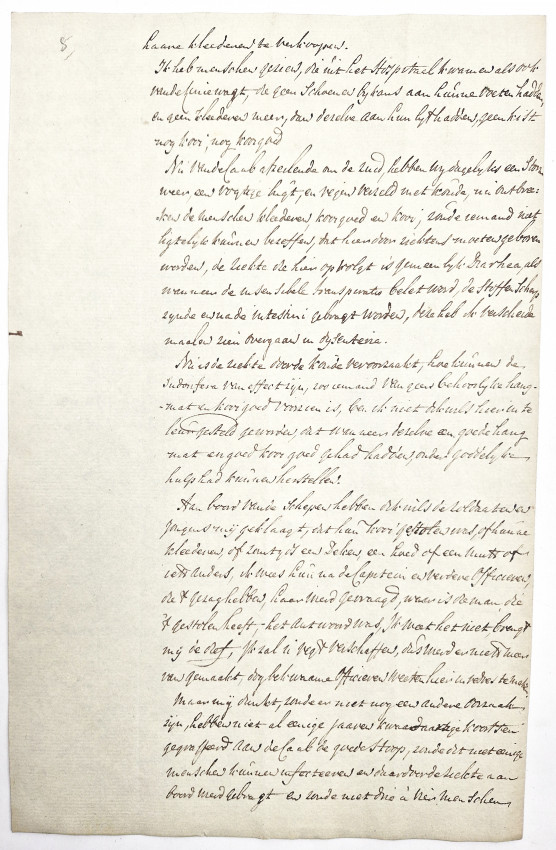 8,
haare kleederen te verkoopen.
Ik heb menschen gezien, die uit het Hospitaal kwamen als ook
van de Liniewagt, die geen Schoenen bykans aan hunne voeten hadden,
en geen kleederen meer, dan dezelve aan hun lyf hadden, geen kist
nog kooi, nog koorgoed
Nu van de Caab afzeilende om de zuid, hebben wy dagelyks een Storm
weer een vogtige lugt, en regen verzeld met koude, nu ontbree-
ken de menschen kleederen koorgoed en kooi, zoude iemand niet
ligtelyk kunnen beseffen, dat hier door ziektens moeten geboren
worden, de ziekte die hier op volgt is gemeenlyk Diarhea, als
wanneer de insensibele transpiratie belet word, de Stoffen Scherp
zynde en na de intestini gebragt worden, deze heb ik verscheide
maalen zien overgaan in dysenterie.
Nu is de ziekte door de koude veroorzaakt, hoe kunnen de
Sudorifera van effect zijn, zo iemand van geen behoorlyke hang-
-mat en koorgoed voorzien is, ben ik niet dikwils hier in te
leur gesteld geworden, dat wanneer dezelve een goede hang
mat en goed koorgoed gehad hadden, onder goddelyke
hulp had kunnen herstellen!
Aan boord van de Schepen hebben dikwils de zoldaaten en
jongens mij geklaagt, dat hun kooi gestolen was, of hunne
kleederen, of zomtyds een deken, een hoed of een muts of
iets anders, ik wees hun na de Capitein en verdere Officieren,
die 't gezag hebben, haar werd gevraagd, waar is de man, die
't gestolen heeft, - het antwoord was, Ik weet het niet brengt
mij de dief, Ik zal u regt verschaffen, dus werd er niets meer
van gemaakt, dog bekwaame Officieren weeten hier in te
Maar mij dunkt, zoude er niet nog een andere oorzaak
zijn, hebben niet al eenige jaaren kwaadaartige koortsen
gegrasseerd aan de Caab de goede Hoop, zoude dit niet eenige
menschen kunnen infecteeren en daar door de ziekte aan
boord werd gebragt en zoude niet drie à vier menschen